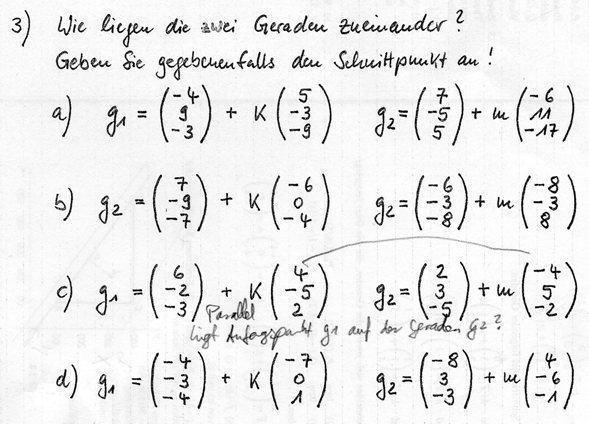 3) Wie liegen die zwei Geraden zueinander?
Geben Sie gegebenenfalls den Schnittpunkt an!
a) g₁ = (-4 9 -3) + K (5 -3 -9) g₂ = (7 -5 5) + m (-6 11 -17)
b) g₂ = (7 -9 -7) + K (-6 0 -4) g₂ = (-6 -3 -8) + m (-8 -3 8)
c) g₁ = (6 -2 -3) + K (4 -5 2) g₂ = (2 3 -5) + m (-4 5 -2)
Parallel
liegt Anfagspunkt g₁ auf der Geraden g₂?
d) g₁ = (-4 -3 -4) + K (-7 0 1) g₂ = (-8 3 -3) + m (4 -6 -1)